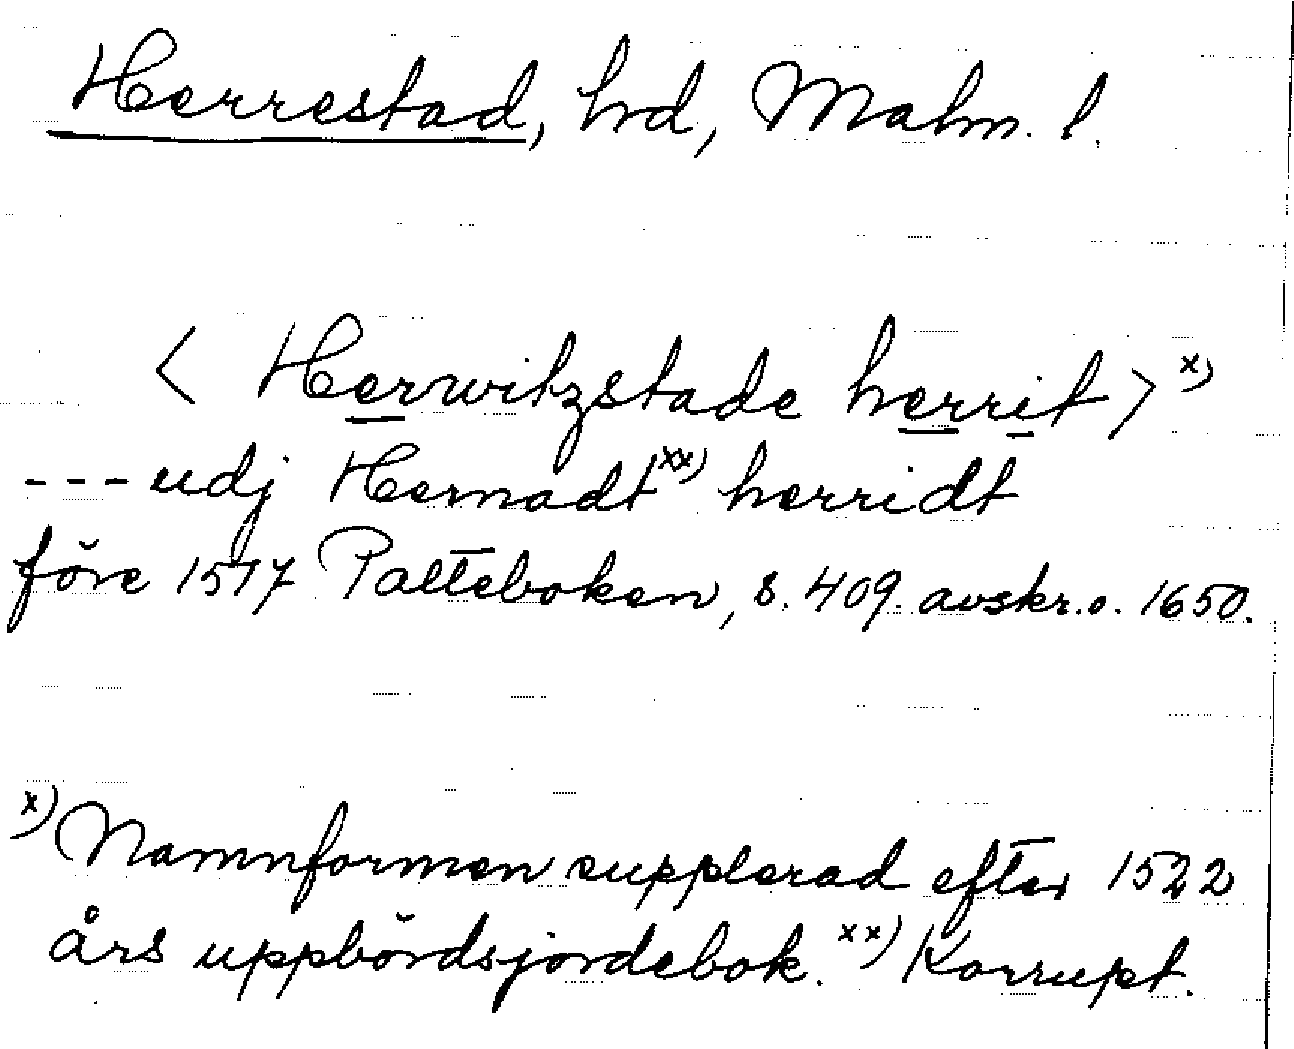 Herrestad, hd, Malm. l.
< Herwitzstade herrit > x)
--- udj Hernadt xx) herridt
före 1517 Palteboken, s. 409. avskr. o. 1650.
x) Namnformen supplerad efter 1522
års uppbördsjordebok. xx) Korrupt.